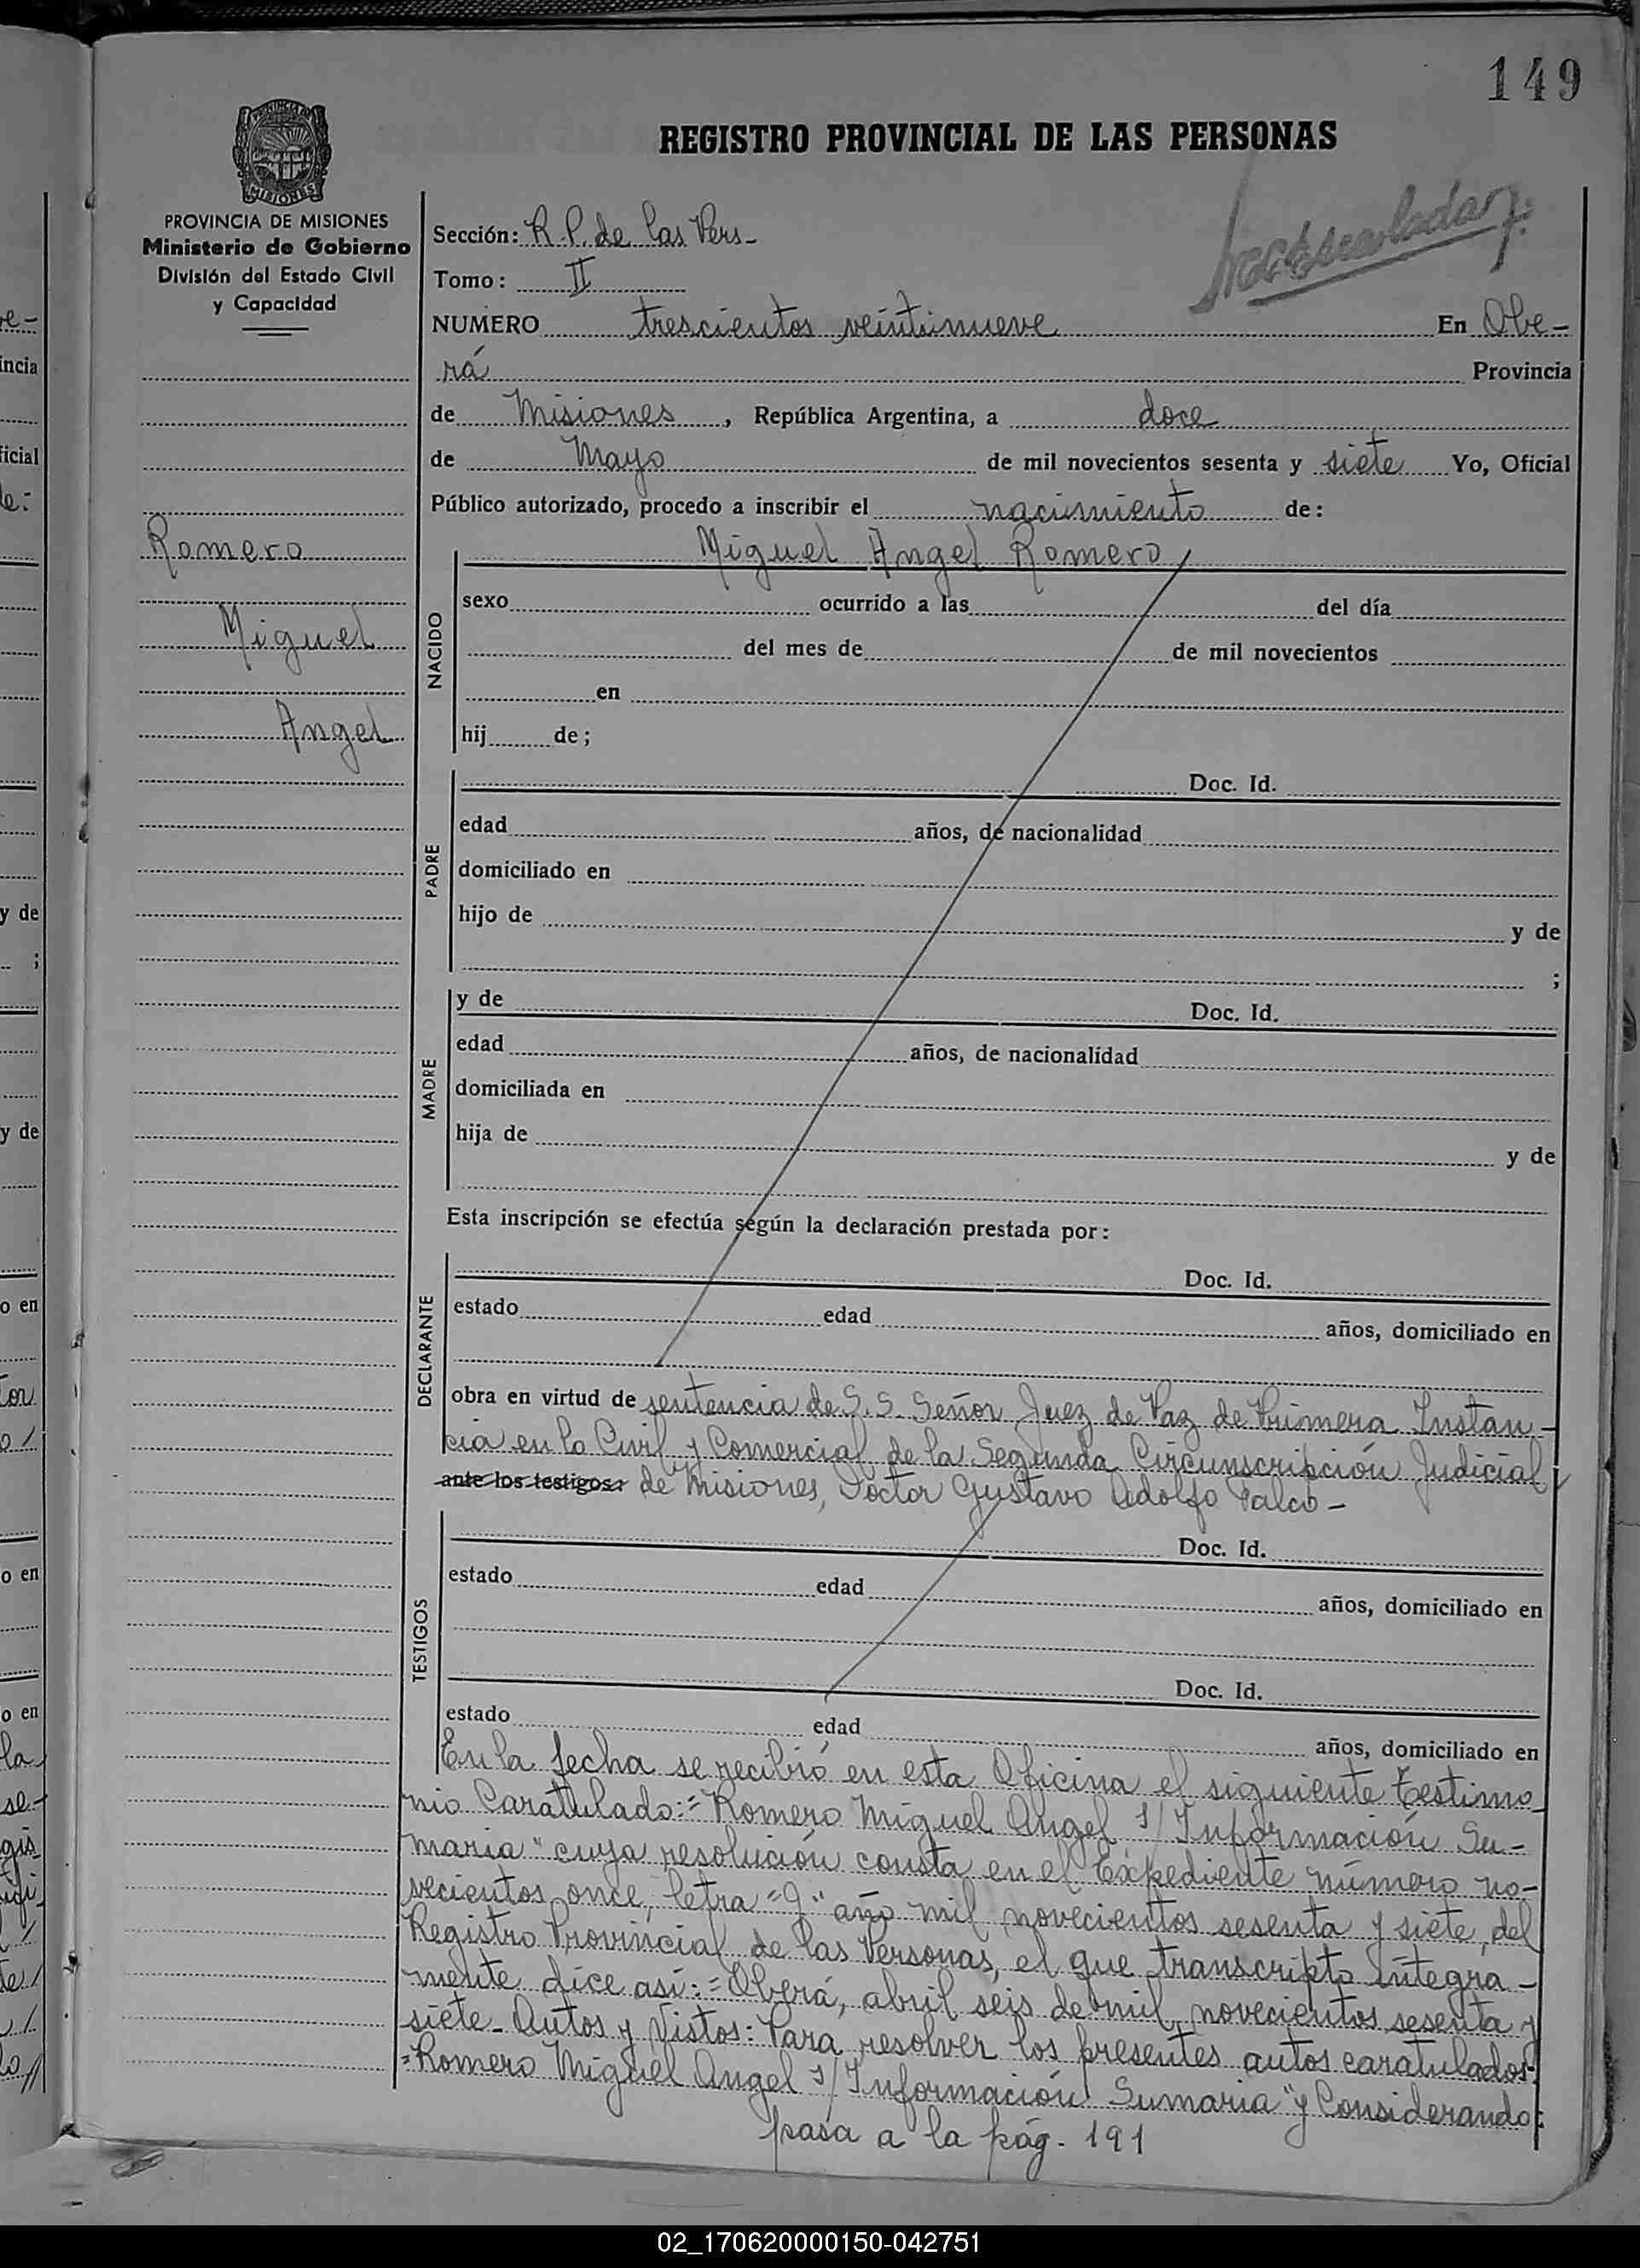 149
REGISTRO PROVINCIAL DE LAS PERSONAS
PROVINCIA DE
MISIONES
PROVINCIA DE MISIONES
Ministerio de Gobierno
División del Estado Civil
y Capacidad
Romero
Miguel
Angel
Sección: R. P. de las Pers-
Tomo: II
NUMERO trescientos veintinueve En Obe-
rá Provincia
de Misiones, República Argentina, a doce
de Mayo de mil novecientos sesenta y siete Yo, Oficial
Público autorizado, procedo a inscribir el nacimiento de:
Miguel Angel Romero
NACIDO
sexo ocurrido a las del día
del mes de de mil novecientos
en
hij de;
PADRE
Doc. Id.
edad años, de nacionalidad
domiciliado en
hijo de y de
;
MADRE
y de Doc. Id.
edad años, de nacionalidad
domiciliada en
hija de y de
Esta inscripción se efectúa según la declaración prestada por:
DECLARANTE
Doc. Id.
estado edad años, domiciliado en
obra en virtud de sentencia de S. S. Señor Juez de Paz de Primera Instan-
cia en lo Civil y Comercial de la Segunda Circunscripción Judicial
ante los testigos: de Misiones, Doctor Gustavo Adolfo
TESTIGOS
Doc. Id.
estado edad años, domiciliado en
Doc. Id.
estado edad años, domiciliado en
En la fecha se recibió en esta Oficina el siguiente testimo
nio Caratulado:= Romero Miguel Angel s/ Información Su-
maria" cuya resolución consta en el Expediente número no-
vecientos once, letra año mil novecientos sesenta y siete, del
Registro Provincial de las Personas, el que transcripto íntegra-
mente dice así:= Oberá, abril seis de mil novecientos sesenta y
siete- Autos y Vistos: Para resolver los presentes autos caratulados:
=Romero Miguel Angel s/ Información Sumaria" y Considerando:
pasa a la pág. 191
ncia
ficial
y de
;
y de
o en
o en
o en
la
se-
02_170620000150-042751